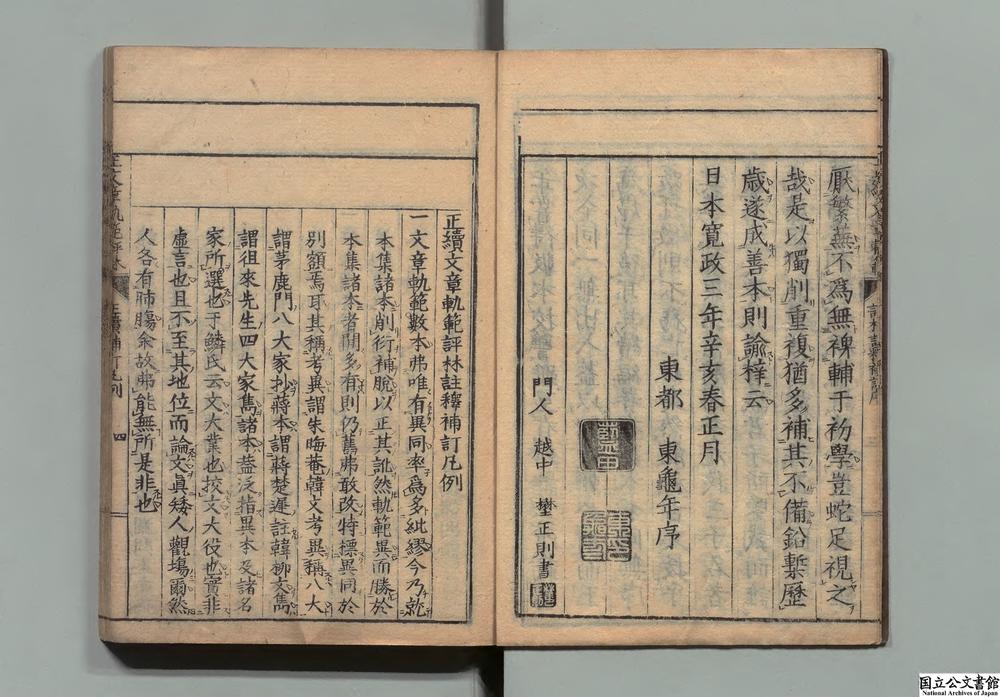 厭繁蕪不爲無裨輔于初學豈蛇足視之
哉是以獨削重複猶多補其不備鉛槧歷
歲遂成善本則諭梓云
日本寬政三年辛亥春正月
東都 東龜年序
門人 越中 埜正則書
正續文章軌範評林註釋補訂凡例
一文章軌範數本弗唯有異同率爲多紕繆今乃就
本集諸本削衍補脫以正其訛然軌範異而勝於
本集諸本者間多有則仍舊弗敢改特標異同於
別額焉耳其稱考異謂朱晦菴韓文考異稱八大
謂茅鹿門八大家抄蔣本謂蔣楚遲註韓柳文雋
謂徂來先生四大家雋諸本蓋泛指異本及諸名
家所選也于鱗氏云文大業也挍文大役也實非
虛言也且不至其地位而論文眞矮人觀塲爾然
人各有肺腸余故弗能無所是非也
四
国立公文書館
National Archives of Japan